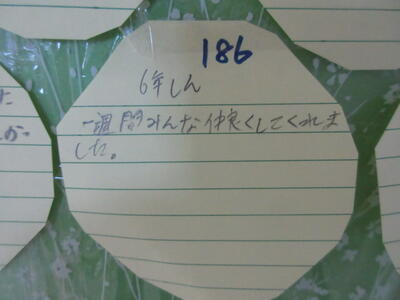 186
6年しん
一週間みんな仲良くしてくれま
した。
た
か